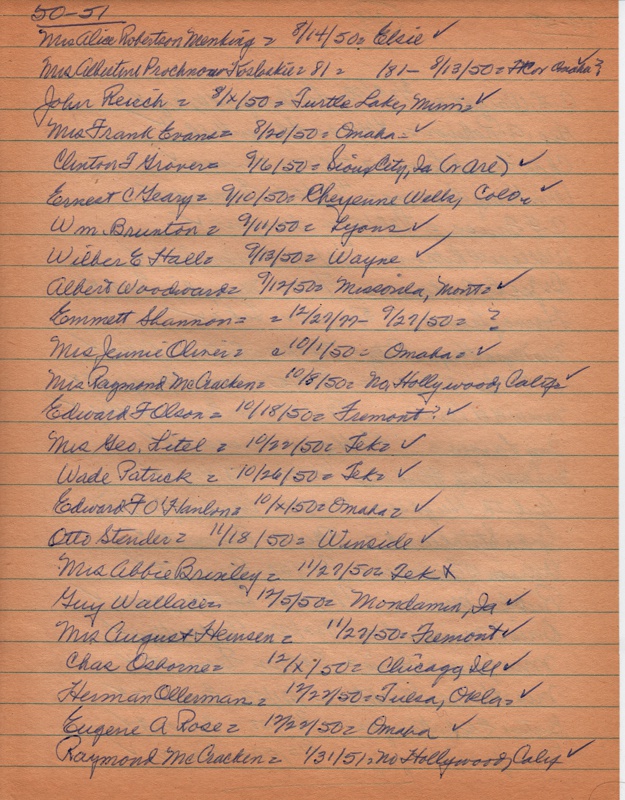 50-51
Mrs Alice Robertson Menking = 8/14/50= Elsie ✓
Mrs Albertine Prochnow Kosloskie= 81 = 181- 8/13/50= Omaha?
John Reisch = 8/x/50= Turtle Lake, Minn= ✓
Mrs Frank Evans= 8/20/50= Omaha= ✓
Clinton F Grover= 9/6/50= Sioux City, Ia (nr are) ✓
Ernest C Geary= 9/10/50= Cheyenne Wells, Colo. ✓
Wm. Brunton = 9/11/50= Lyons ✓
Wilber E Hall= 9/13/50= Wayne ✓
Albert Woodward= 9/12/50= Missoula, Mont= ✓
Emmett Shannon= = 12/27/77- 9/27/50= ?
Mrs Jennie Oliver= 10/1/50= Omaha= ✓
Mrs Raymond McCracken= 10/8/50= No, Hollywood, Calif ✓
Edward F Olson= 10/18/50= Fremont? ✓
Mrs Geo. Litel = 10/22/50= Tek= ✓
Wade Patrick = 10/26/50= Tek= ✓
Edward F O'Hanlon= 10/x/50= Omaha= ✓
Otto Stender= 11/18/50= Winside ✓
Mrs Abbie Brixley= 11/27/50= Tek x
Guy Wallace= 12/5/50= Mondamin, Ia ✓
Mrs August Heinsen = 11/27/50= Fremont ✓
Chas Osborne= 12/x7/50= Chicago, Ill ✓
Herman Ollerman= 12/22/50= Tulsa, Okla= ✓
Eugene A Rose= 12/22/50= Omaha ✓
Raymond McCracken= 1/31/51= No Hollywood, Calif ✓